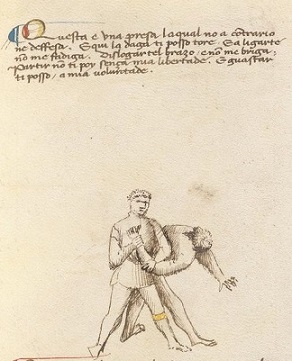 Questa è una presa la qual no à contrario
ne deffesa. E qui la daga ti posso tore. E a ligarte
nō me fadiga. Dislogarte l brazo, e nō me briga,
Partir nō ti poy sença mia libertade. E guastar
ti posso, a mia voluntade.